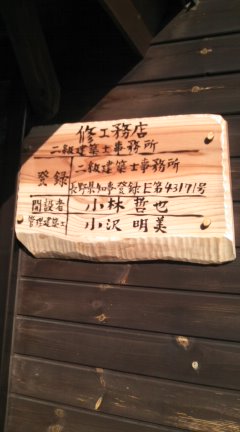 修工務店
二級建築士事務所
登録 二級建築士事務所
長野県知事登録E第43171号
開設者 小林 哲也
管理建築士 小沢 明美